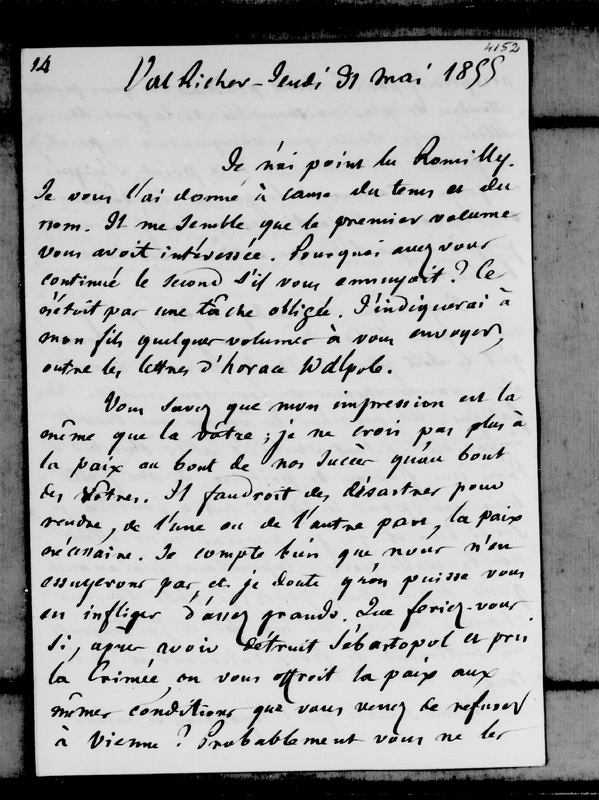 14
4152
Val Richer - Jeudi 31 mai 1855
Je n'ai point lu Romilly.
Je vous l'ai donné à cause du tems et du
nom. Il me semble que le premier volume
vous avoit intéressée. Pourquoi avez vous
continué le second s'il vous ennuyait ? Ce
n'étoit pas une tâche obligée. J'indiquerai à
mon fils quelques volumes à vous envoyer,
outre les lettres d'horace Walpole.
Vous savez que mon impression est la
même que la vôtre ; je ne crois pas plus à
la paix au bout de nos succès qu'au bout
des vôtres. Il faudroit des désastres pour
rendre, de l'une ou de l'autre part, la paix
nécessaire. Je compte bien que nous n'en
essuyerons pas, et je doute qu'on puisse vous
en infliger d'assez grands. Que feriez-vous
si, après avoir détruit Sébastopol et pris
la Crimée, on vous offroit la paix aux
mêmes conditions que vous venez de refuser
à Vienne ? Probablement vous ne les